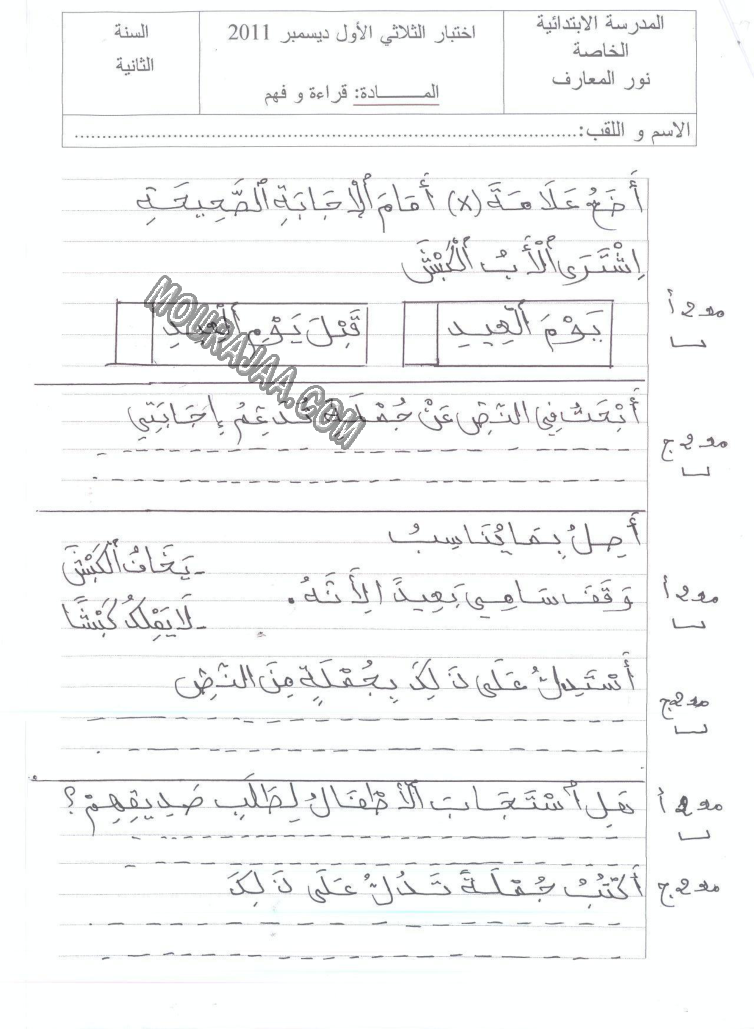 المدرسة الابتدائية
الخاصة
نور المعارف
اختبار الثلاثي الأول ديسمبر 2011
المـــــــادة: قراءة و فهم
السنة
الثانية
الاسم و اللقب:................................................................................
أَضَعُ عَلَامَةَ (x) أَمَامَ ٱلْإِجَابَةِ ٱلصَّحِيحَةِ
اِشْتَرَى ٱلْأَبُ ٱلْكَبْشَ
يَوْمَ ٱلْعِيدِ
قَبْلَ يَوْمِ ٱلْعِيدِ
مع2 أ
MOURAJAA.COM
أَبْحَثُ فِي النَّصِّ عَنْ جُمْلَةٍ تُدَعِّمُ إِجَابَتِي
مع2 ج
أَصِلُ بِمَا يُنَاسِبُ
- يَخَافُ ٱلْكَبْشَ
وَقَفَ سَامِي بَعِيدًا لِأَنَّهُ .
مع2 أ
- لَا يَمْلِكُ كَبْشًا
أَسْتَدِلُّ عَلَى ذَلِكَ بِجُمْلَةٍ مِنَ النَّصِّ
مع2 ج
هَلِ ٱسْتَجَابَ ٱلْأَطْفَالُ لِطَلَبِ صَدِيقِهِمْ؟
مع2 أ
أَكْتُبُ جُمْلَةً تَدُلُّ عَلَى ذَلِكَ
مع2 ج